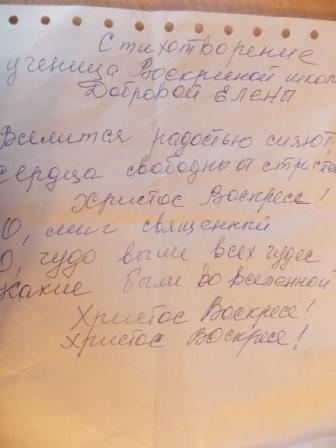 Стихотворение
ученица Воскрисной школ
Добровой Елены
Вселится радостью сияют,
Сердца свободны от страсте
Христос Воскресе!
О, миг священный
О, чудо выше всех чудес
Какие были во вселенной
Христос Воскресе!
Христос Воскресе!